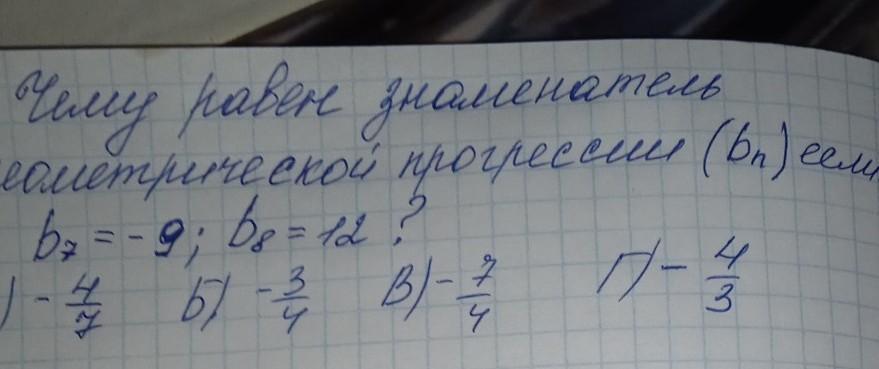 Чему равен знаменатель
еометрической прогрессии (bn) если
b7 = -9; b8 = 12 ?
) -4/7 Б) -3/4 В) -7/4 Г) -4/3